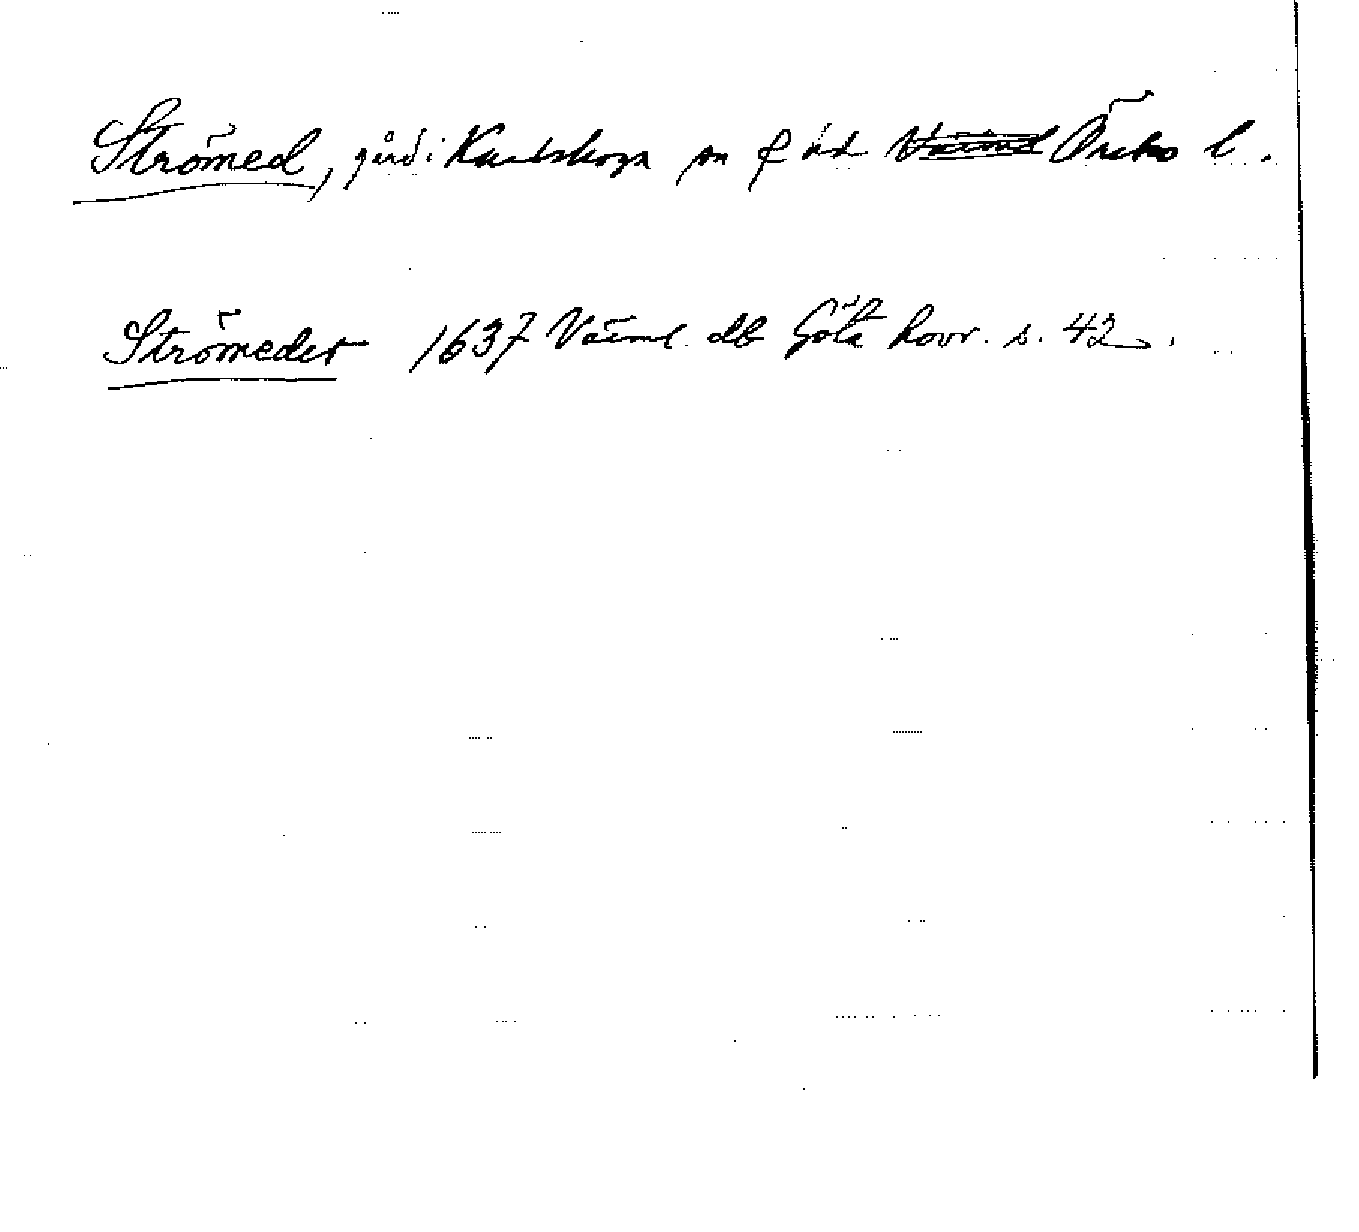 Strömed, gård i Karlskoga sn o hd Värml Örebro l.
Strömeder 1637 Värml. db Göta hovr. s. 42.